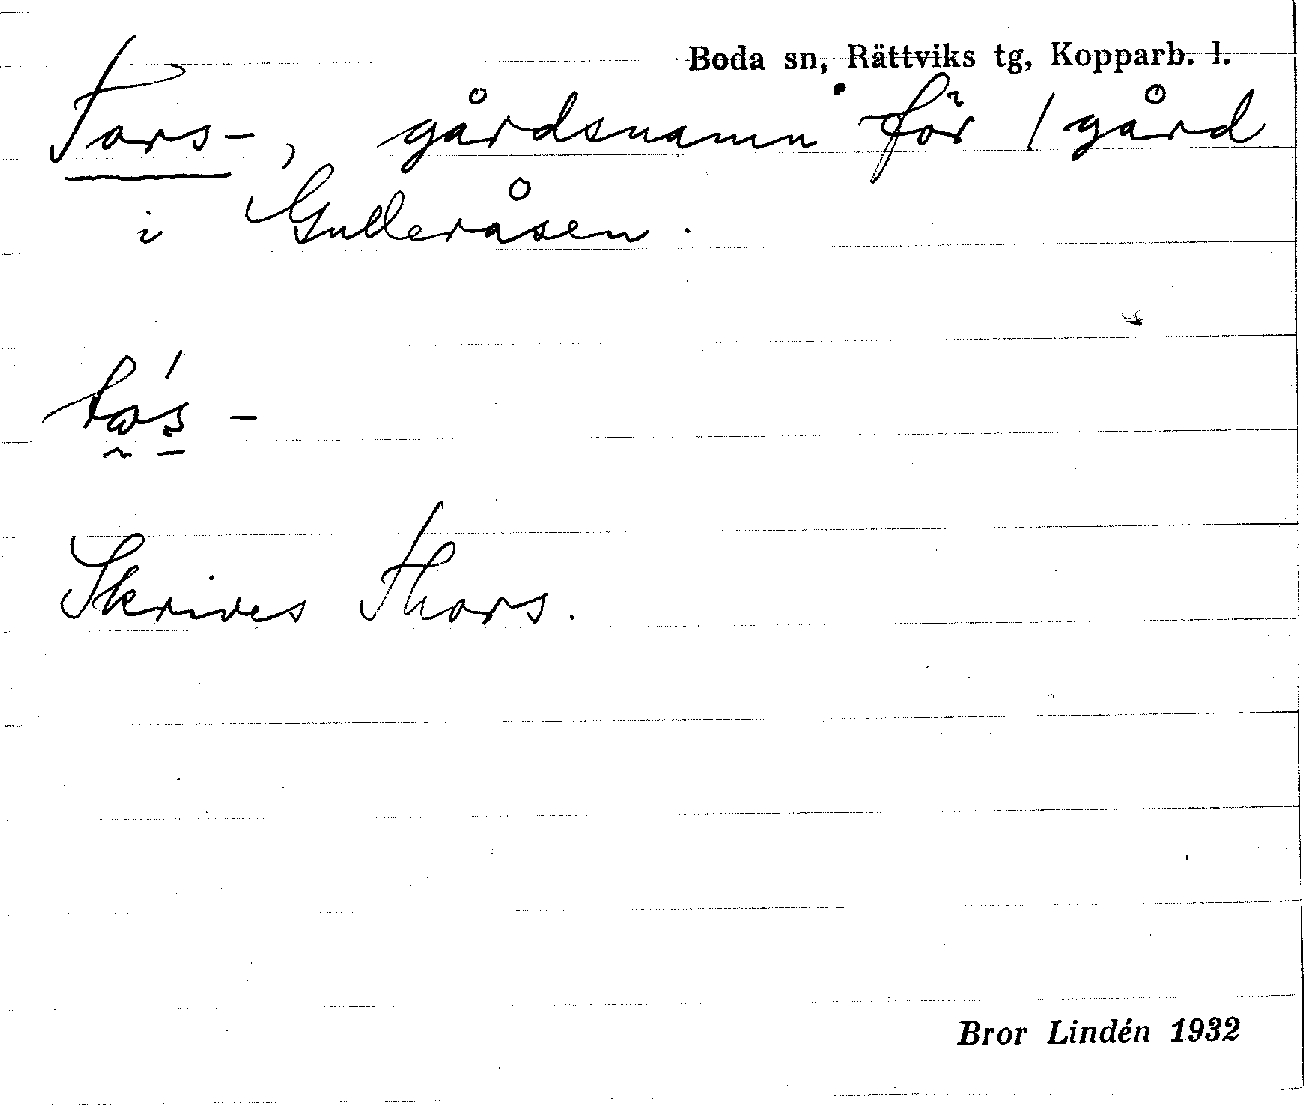 Boda sn, Rättviks tg, Kopparb. l.
Tors-, gårdsnamn för 1 gård
i Gulleråsen.
Skrives Thors.
Bror Lindén 1932